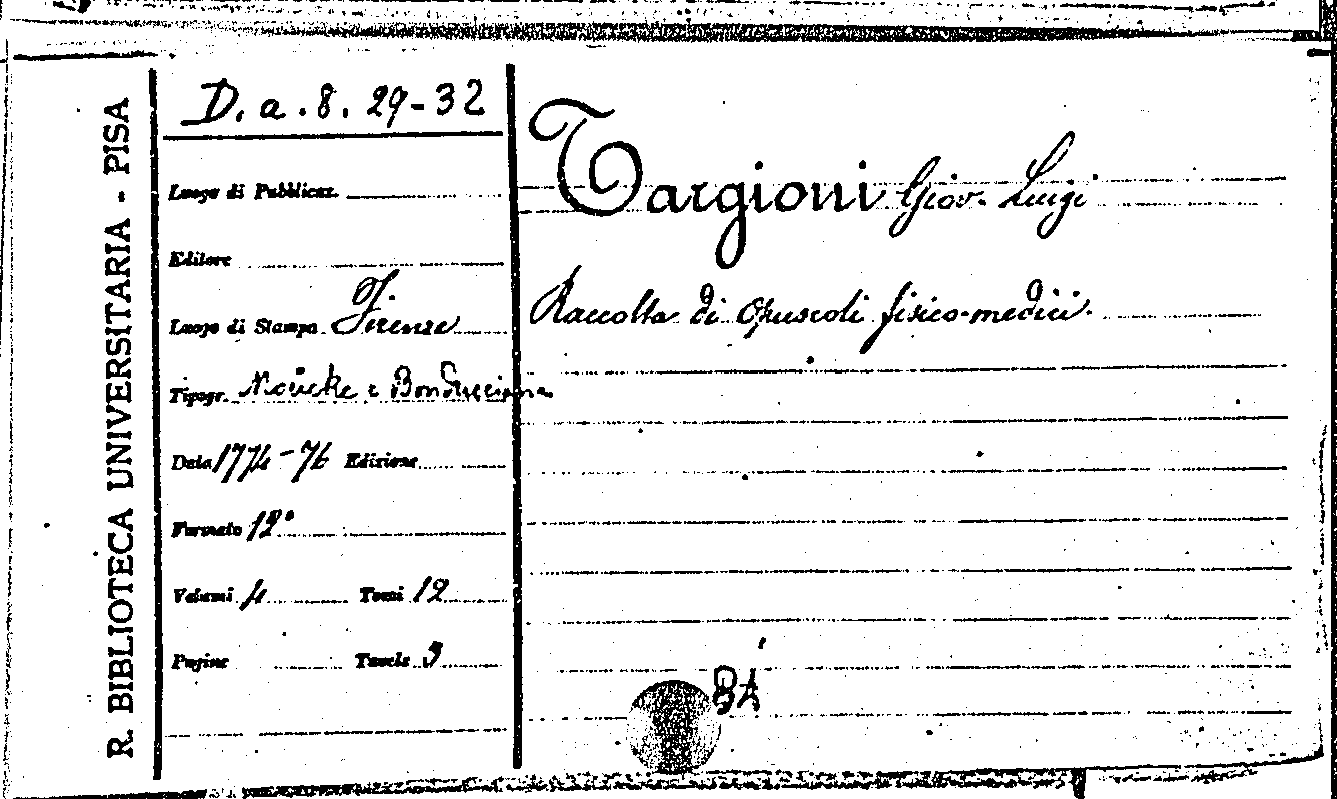 R. BIBLIOTECA UNIVERSITARIA - PISA
D. a. 8. 29-32
Luogo di Pubblicaz.
Editore
Luogo di Stampa Firenze
Tipogr. Moücke e Bonducciana
Data 1774-76 Edizione
Formato 12°
Volumi 4 Tomi 12
Pagine Tavole 3
Targioni Giov. Luigi
Raccolta di Opuscoli fisico-medici.
BA